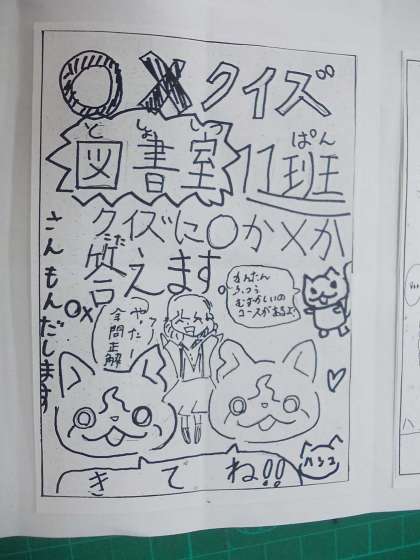 ○×クイズ
としょしつ
図書室
ぱん
11班
クイズに○か×か
こた
答えます
さんもんだします
○×
かんたん
ふつう
むずかしいの
コースがあるよ
やったー
全問正解
きてね!!